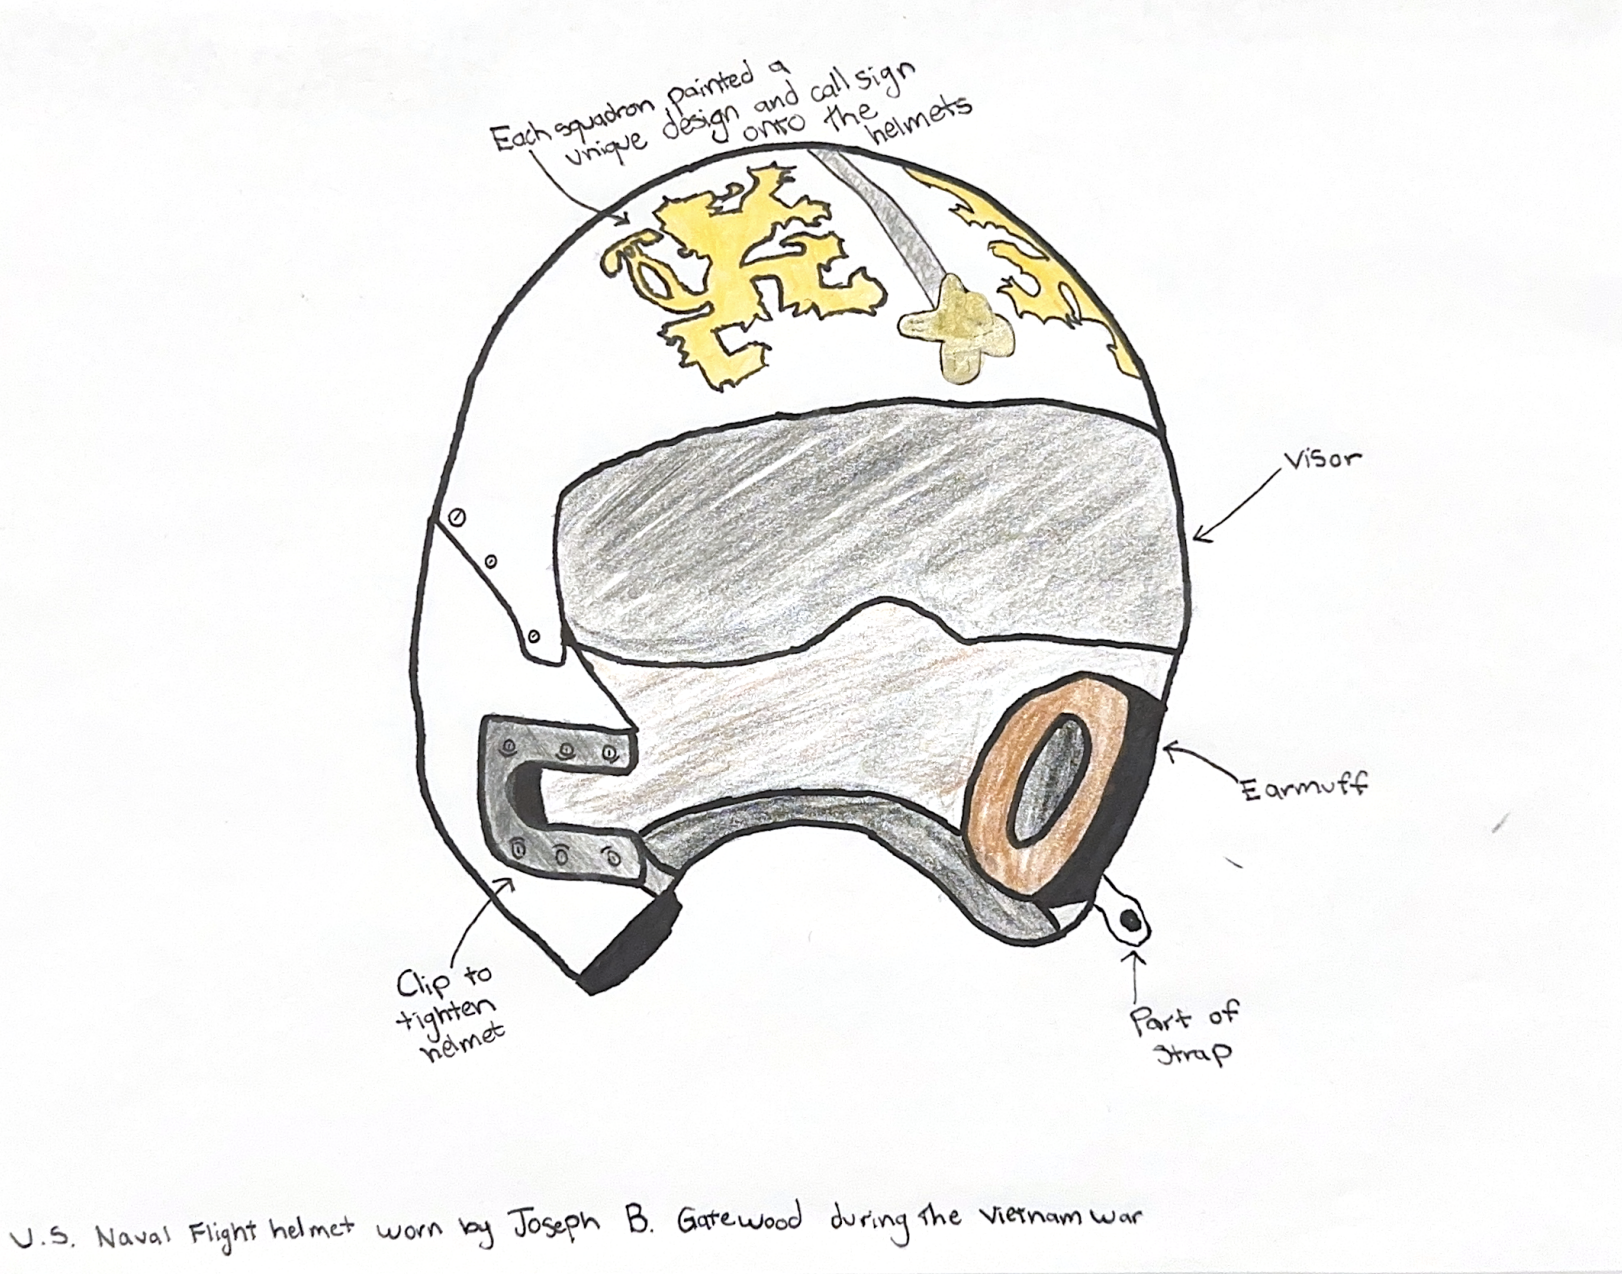 Each squadron painted a
unique design and call sign
onto the
helmets
Visor
Earmuff
Clip to
tighten
helmet
Part of
strap
U.S. Naval Flight helmet worn by Joseph B. Gatewood during the Vietnam war